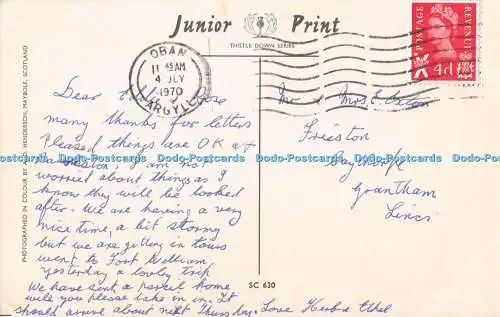 Junior Print
THISTLE DOWN SERIES
POSTAGE REVENUE
4d
OBAN
11 45 AM
4 JLY
1970
ARGYLL
PHOTOGRAPHED IN COLOUR BY JOHN HENDERSON, MAYBOLE, SCOTLAND
Dear
many thanks for letters
Pleased things are OK at
I am not
worried about things as I
know they will be looked
after. We are having a very
nice time, a bit stormy
but we are getting in tours
went to Fort William
yesterday a lovely trip
We have sent a parcel home
will you please take in in. It
should arrive about next Thursday. Love Herb & Ethel
Mr & Mrs E.
Frieston
Grantham
Lincs
SC 630
Dodo-Postcards Dodo-Postcards Dodo-Postcards Dodo-Postcards Dodo-Postcards